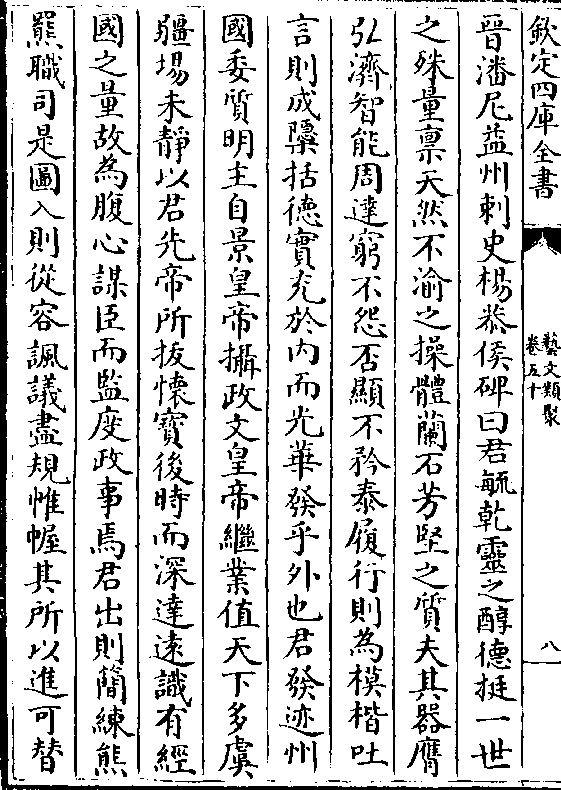 欽定四庫全書
藝文類聚
卷五十
八
晉潘尼益州刺史楊恭侯碑曰君毓乾靈之醇德挺一世
之殊量禀天然不渝之操體蘭石芳堅之質夫其器膺
弘濟智能周達窮不怨否顯不矜泰履行則為模楷吐
言則成檃括德實充於内而光華發乎外也君發迹州
國委質明主自景皇帝攝政文皇帝繼業值天下多虞
疆場未靜以君先帝所拔懷寶後時而深達遠識有經
國之量故為腹心謀臣而監度政事焉君出則簡練熊
羆職司是圖入則從容諷議盡規帷幄其所以進可替